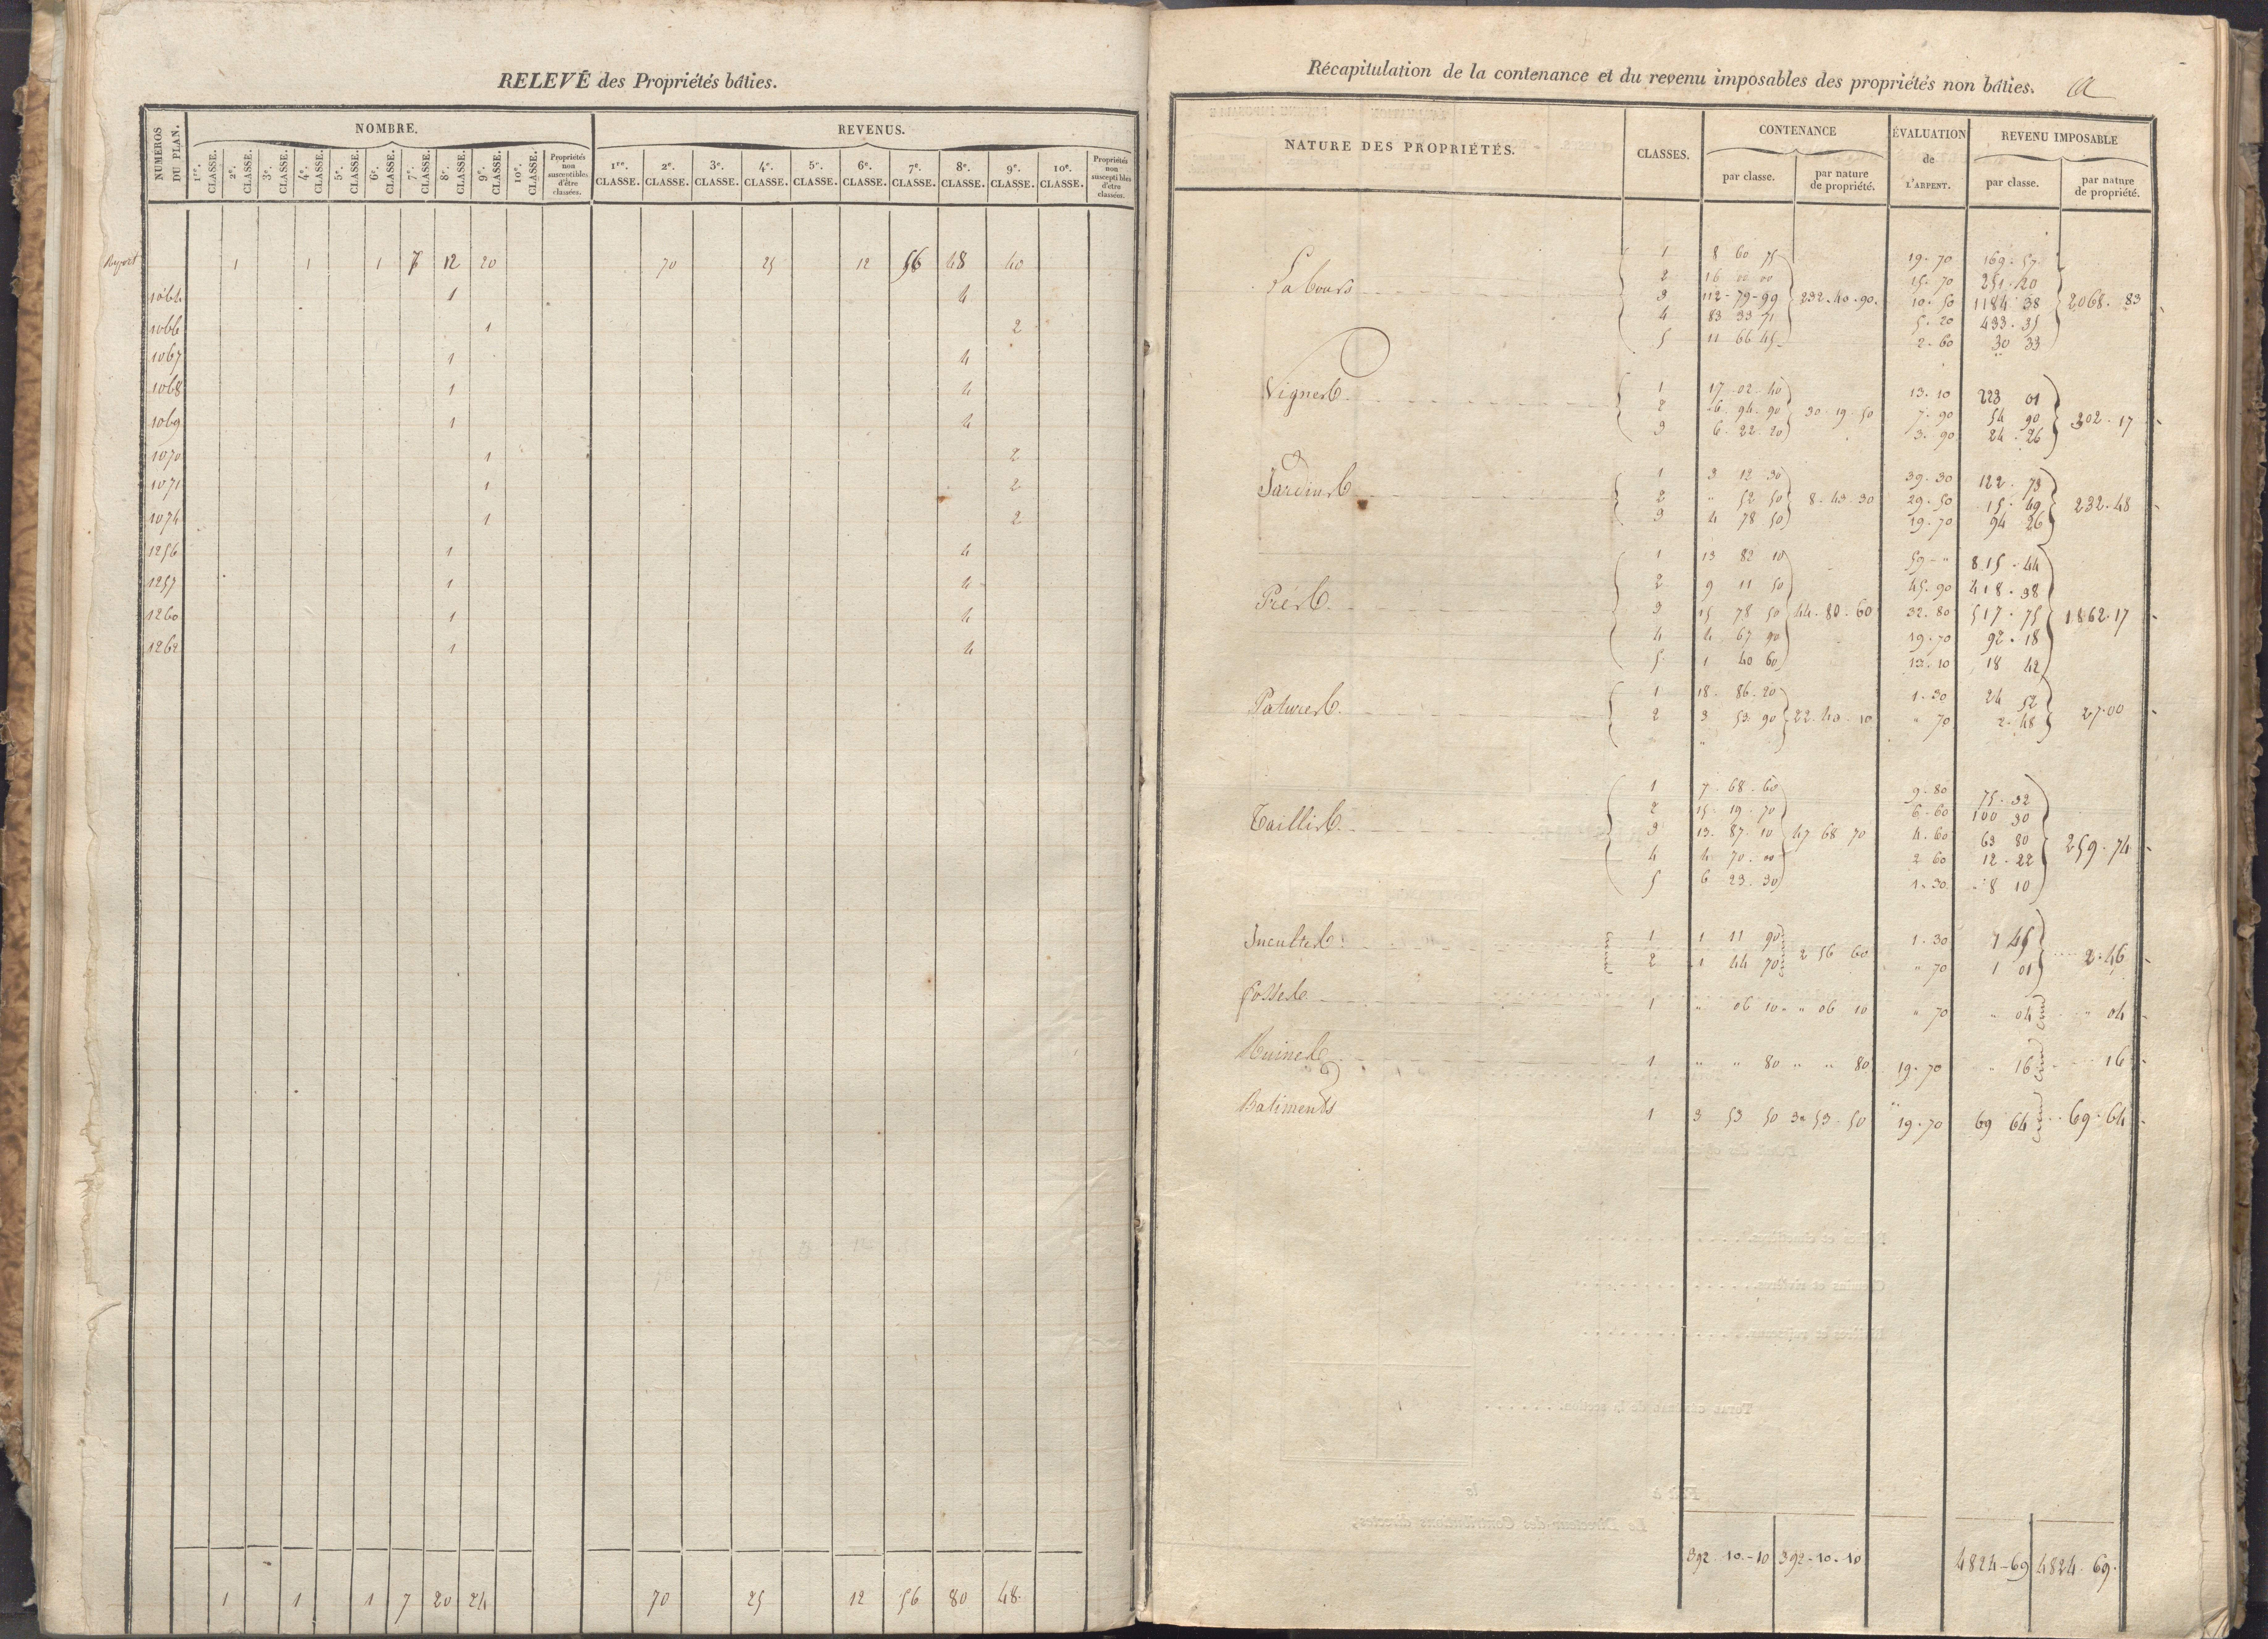 RELEVÉ des Propriétés bâties.
NUMEROS DU PLAN. NOMBRE. REVENUS.
1re. CLASSE. 2e. CLASSE. 3e. CLASSE. 4e. CLASSE. 5e. CLASSE. 6e. CLASSE. 7e. CLASSE. 8e. CLASSE. 9e. CLASSE. 10e. CLASSE. Propriétés non susceptibles d'être classées. 1re. CLASSE. 2e. CLASSE. 3e. CLASSE. 4e. CLASSE. 5e. CLASSE. 6e. CLASSE. 7e. CLASSE. 8e. CLASSE. 9e. CLASSE. 10e. CLASSE. Propriétés non susceptibles d'être classées.
Report 1 1 1 7 12 20 70 25 12 56 48 40
1064 1 4
1066 1 2
1067 1 4
1068 1 4
1069 1 4
1070 1 2
1071 1 2
1074 1 2
1256 1 4
1257 1 4
1260 1 4
1262 1 4
1 1 1 7 20 24 70 25 12 56 80 48
Récapitulation de la contenance et du revenu imposables des propriétés non bâties.
NATURE DES PROPRIÉTÉS. CLASSES. CONTENANCE ÉVALUATION de L'ARPENT. REVENU IMPOSABLE
par classe. par nature de propriété. par classe. par nature de propriété.
1 8 60 75 19.70 169.57
2 16 00 00 15.70 251.20
Labours 3 112-79-99 232.40.90. 10.50 1184 38 2068.83
4 83 33 71 5.20 433.35
5 11 66 45 2.60 30 33
Vignes 1 17.02.40 13.10 223 01
2 6.94.90 30.19.50 7.90 54 90 302.17
3 6.22.20 3.90 24.26
1 3 12 30 39.30 122.73
Jardins 2 " 52 50 8.43.30 29.50 15.49 232.48
3 4 78 50 19.70 94 26
1 13 82 10 59-" 815.44
2 9 11 50 45.90 418.38
Prés 3 15 78 50 44.80.60 32.80 517.75 1862.17
4 4 67 90 19.70 92.18
5 1 40 60 13.10 18 42
1 18.86.20 1.30 24 52
Patures 2 3 53.90 22.40.10 " 70 2.48 27.00
1 7.68.60 9.80 75.32
2 15.19.70 6.60 100 30
Taillis 3 13.87.10 47 68 70 4.60 63 80 259.74
4 4.70.00 2 60 12.22
5 6 23.30 1.30 8 10
Incultes 1 1 11 90 1.30 1 45
2 1 44 70 2 56 60 " 70 1 01 2.46
Fosses 1 " 06 10 " 06 10 " 70 " 04 " 04
Ruines 1 " " 80 " " 80 19.70 " 16 16
Batiments 1 3 53 50 3.53.50 19.70 69 64 69.64
392.10.10 392.10.10 4824-69 4824.69.